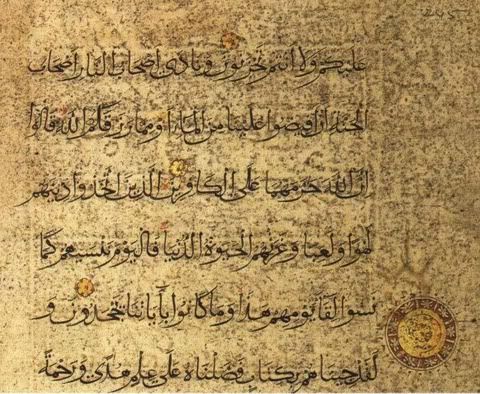 عليكم ولا انتم تحزنون ونادى اصحاب النار اصحاب
الجنة ان افيضوا علينا من الماء او مما رزقكم الله قالوا
ان الله حرمهما على الكافرين الذين اتخذوا دينهم
لهوا ولعبا وغرتهم الحيوة الدنيا فاليوم ننسيهم كما
نسوا لقاء يومهم هذا وما كانوا بآياتنا يجحدون و
لقد جئناهم بكتاب فصلناه على علم هدى ورحمة